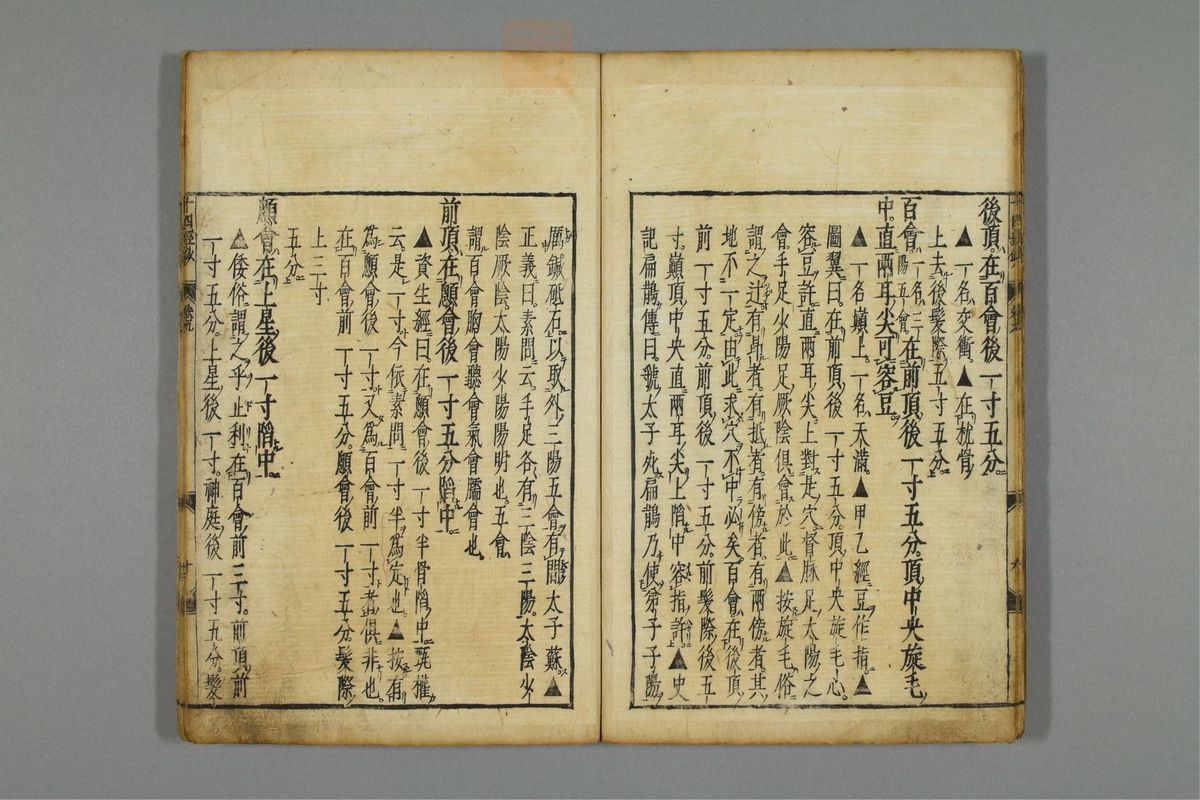 後頂在百會後一寸五分
▲一名交衝▲在枕骨
上去後髮際五寸五分
百會一名三陽五會在前頂後一寸五分頂中央旋毛
中直兩耳尖可容豆
▲一名巓上一名天滿▲甲乙經豆作指▲
圖翼曰在前頂後一寸五分頂中央旋毛心
容豆許直兩耳尖上對是穴督脉足太陽之
會手足少陽足厥陰俱會於此▲按旋毛俗
謂之辻有尋者有抵者有傍者有兩傍者其
地不一定由此求穴不中必矣百會在後頂
前一寸五分前頂後一寸五分前髮際後五
寸巓頂中央直兩耳尖上陷中容指許▲史
記扁鵲傳曰虢太子死扁鵲乃使弟子子陽
厲鍼砥石以取外三陽五會有間太子蘇▲
正義曰素問云手足各有三陰三陽太陰少
陰厥陰太陽少陽陽明也五會
謂百會胸會聽會氣會臑會也
前頂在顖會後一寸五分陷中
▲資生經曰在顖會後一寸半骨陷中甄權
云是一寸今依素問一寸半為定也▲按有
為顖會後一寸又為百會前一寸者俱非也
在百會前一寸五分顖會後一寸五分髮際
上三寸
五分
顖會在上星後一寸陷中
▲倭俗謂之乎止利在百會前三寸前頂前
一寸五分上星後一寸神庭後一寸五分髮
十四經